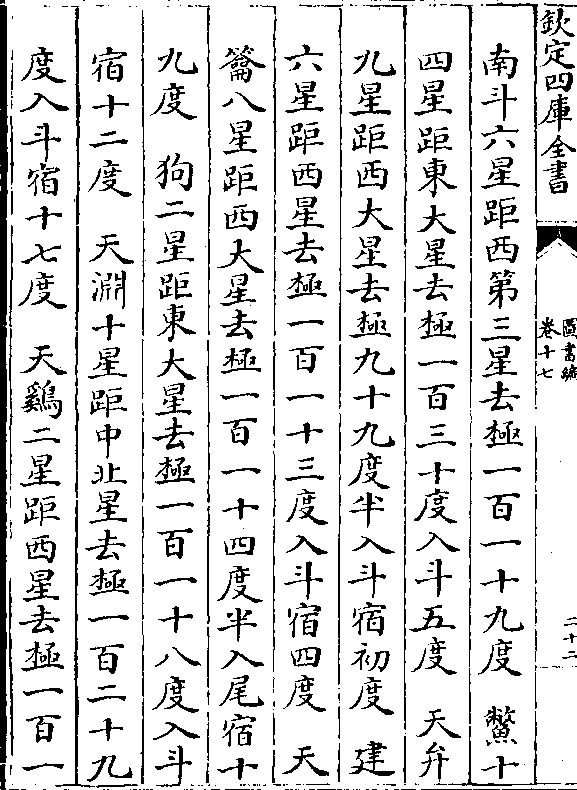 欽定四庫全書
圖書編
卷十七
二十二
南斗六星距西第三星去極一百一十九度　鱉十
四星距東大星去極一百三十度入斗五度　天弁
九星距西大星去極九十九度半入斗宿初度　建
六星距西星去極一百一十三度入斗宿四度　天
籥八星距西大星去極一百一十四度半入尾宿十
九度　狗二星距東大星去極一百一十八度入斗
宿十二度　天淵十星距中北星去極一百二十九
度入斗宿十七度　天鷄二星距西星去極一百一